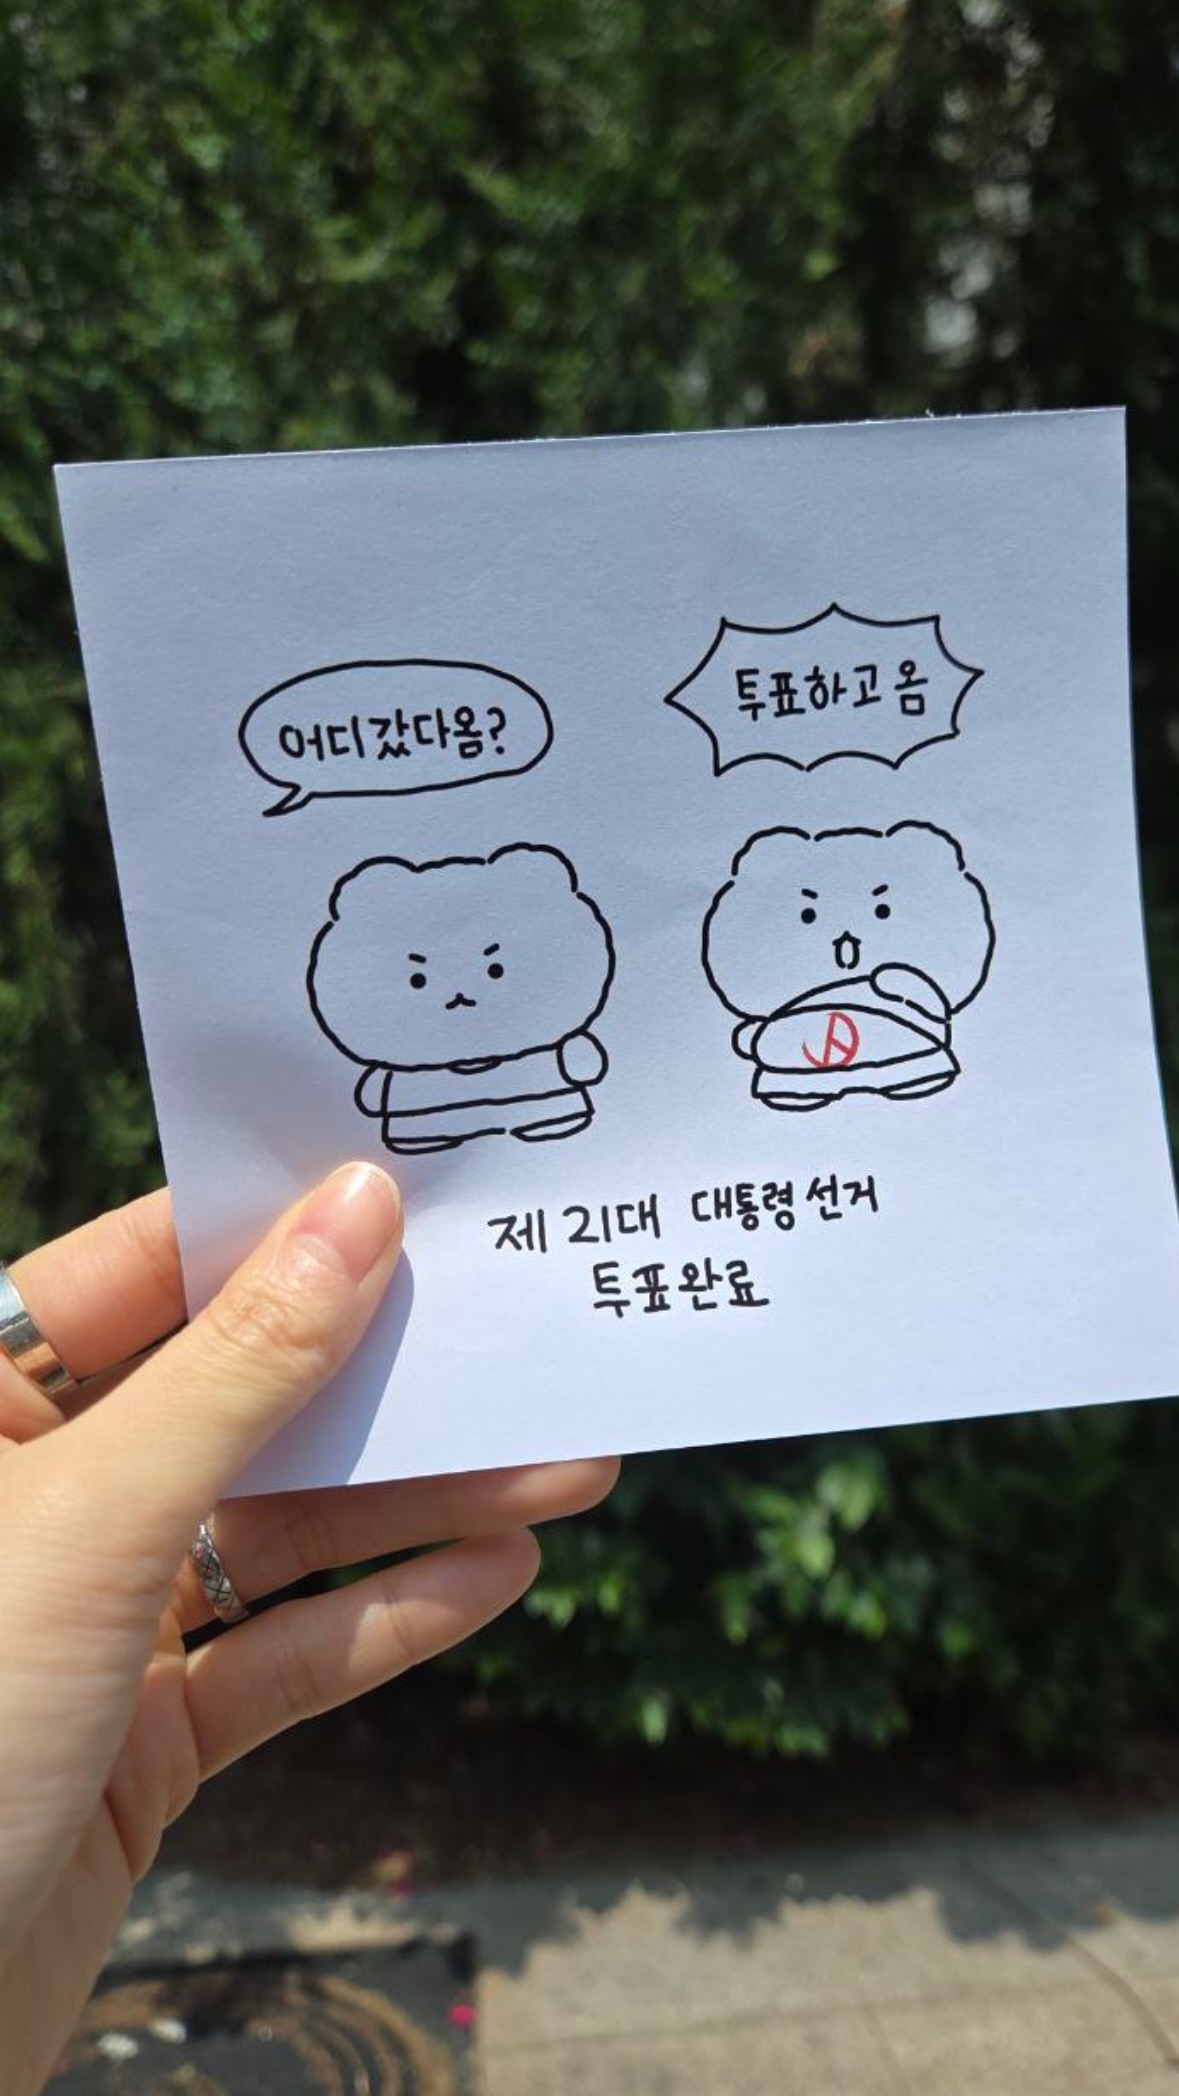 어디갔다옴?
투표하고옴
제 21대 대통령선거
투표완료